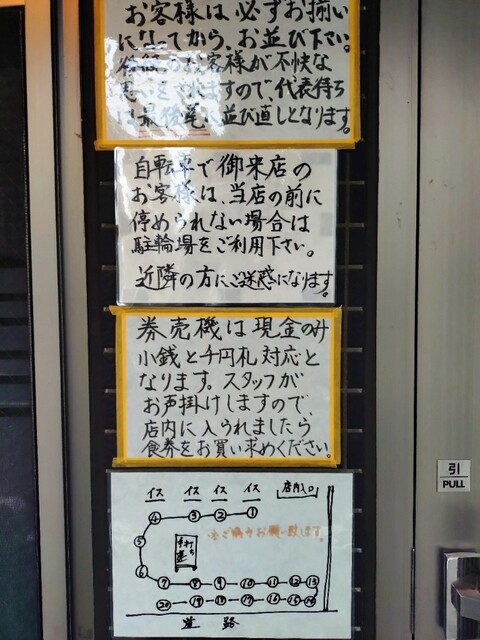 お客様は必ずお揃い
になってから、お並び下さい。
のお客様が不快な
思いをされますので、代表待ち
は最後尾に並び直しとなります。
自転車で御来店の
お客様は、当店の前に
停められない場合は
駐輪場をご利用下さい。
近隣の方にご迷惑になります。
券売機は現金のみ
小銭と千円札対応と
なります。スタッフが
お声掛けしますので、
店内に入られましたら
食券をお買い求めください。
イス イス イス イス 店内入口
④ ③ ② ①
※ご協力お願い致します。
⑤
手打ち
⑥
⑦ ⑧ ⑨ ⑩ ⑪ ⑫ ⑬
⑳ ⑲ ⑱ ⑰ ⑯ ⑮ ⑭
道路
引
PULL